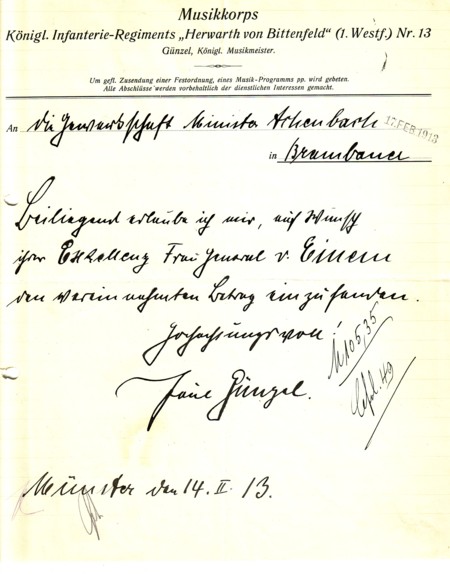 Musikkorps
Königl. Infanterie-Regiments „Herwarth von Bittenfeld" (1. Westf.) Nr. 13
Günzel, Königl. Musikmeister.
Um gefl. Zusendung einer Festordnung, eines Musik-Programms pp. wird gebeten.
Alle Abschlüsse werden vorbehaltlich der dienstlichen Interessen gemacht.
An die Gewerkschaft Minister Achenbach
17. FEB 1913
in Brambauer
Beiliegend erlaube ich mir, auf Wunsch
ihrer Exzellenz Frau General v. Einem
den vereinnahmten Betrag einzusenden.
Hochachtungsvoll!
Günzel.
M 105,35
49
Münster den 14. II. 13.